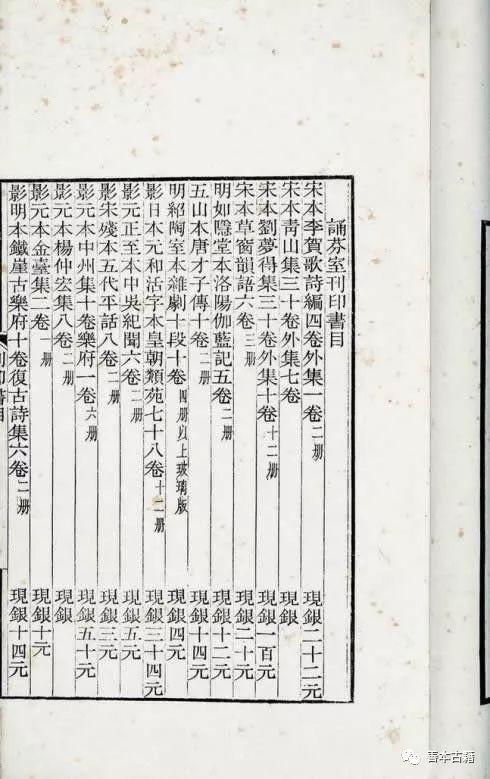 誦芬室刊印書目
宋本李賀歌詩編四卷外集一卷 二册 現銀二十二元
宋本青山集三十卷外集七卷 現銀
宋本劉夢得集三十卷外集十卷 十二册 現銀一百元
宋本草窗韻語六卷 三册 現銀二十元
明如隱堂本洛陽伽藍記五卷 二册 現銀十二元
五山本唐才子傳十卷 二册 現銀十四元
明紹陶室本雜劇十段十卷 四册以上玻璃版 現銀四元
影日本元和活字本皇朝類苑七十八卷 十二册 現銀三十四元
影元正至本中吳紀聞六卷 二册 現銀五元
影宋殘本五代平話八卷 二册 現銀三元
影元本中州集十卷樂府一卷 六册 現銀五十元
影元本楊仲宏集八卷 二册 現銀
影元本金臺集二卷 一册 現銀十元
影明本鐵崖古樂府十卷復古詩集六卷 二册 現銀十四元
刊印書目
善本古籍